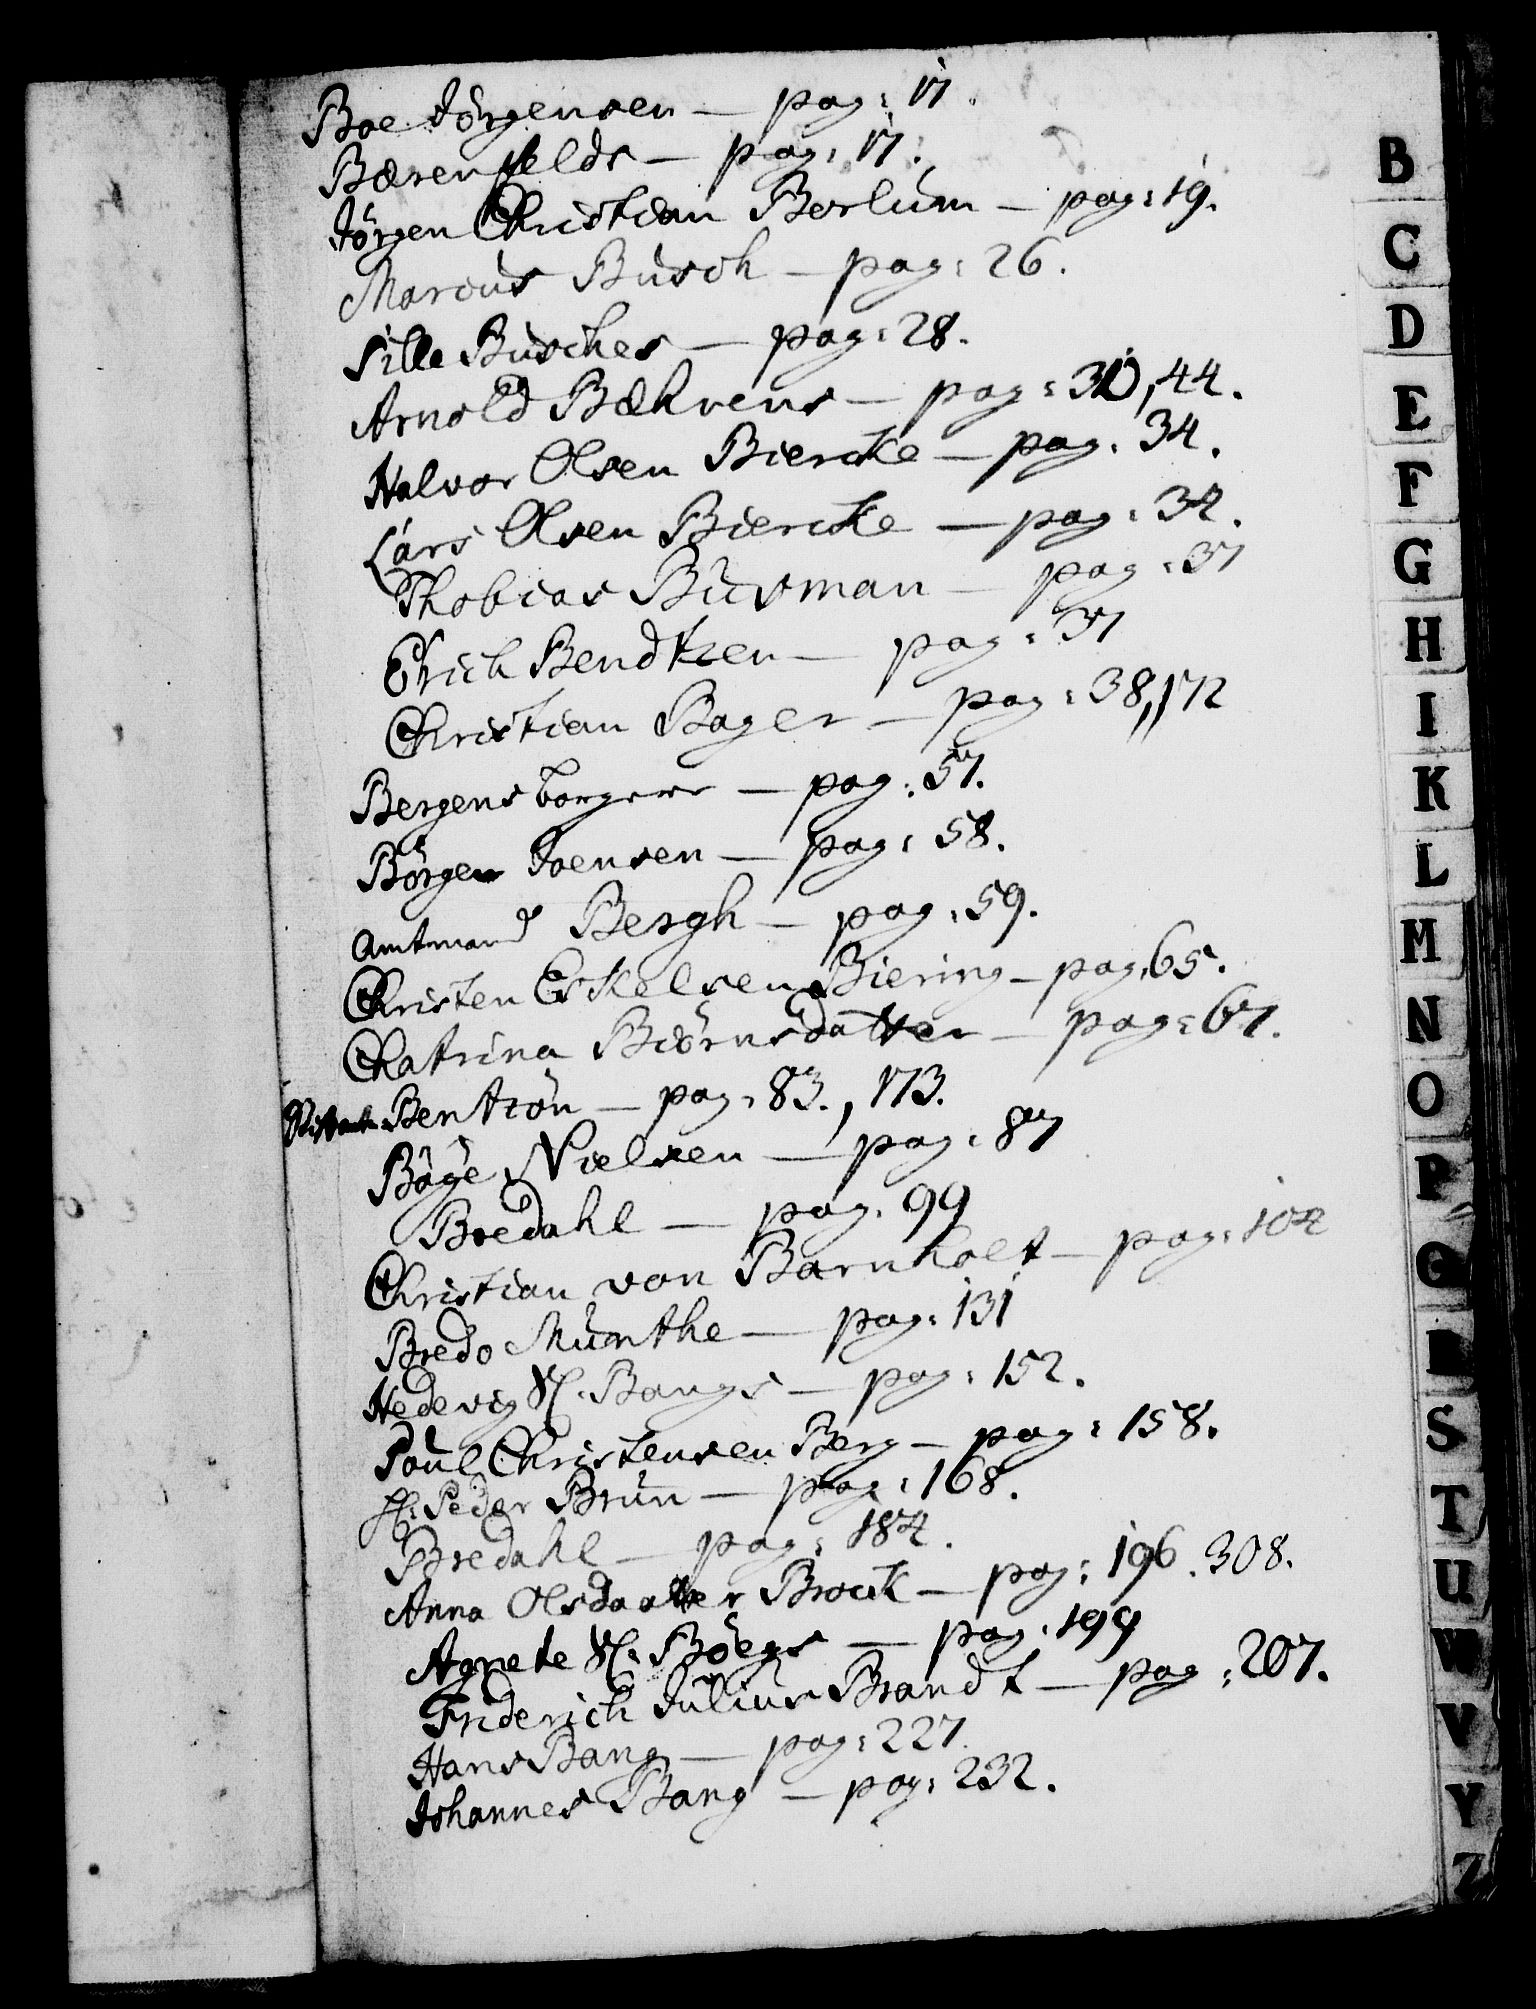 Boe Jörgensen — pag: 17.
Bærenfelds — pag: 17.
Jörgen Christian Berlum — pag: 19.
Marcus Busch — pag: 26.
Sille Busches — pag: 28.
Arnold Bæhrens — pag: 30, 44.
Halvor Olsen Biercke — pag: 34.
Lars Olsen Biercke — pag: 34.
Thobias Buxman — pag: 37
Erich Bendtzen — pag: 37
Christian Bager — pag: 38, 172
Bergens borgere — pag: 57.
Börge Joensen — pag: 58.
Amtmand Bergh — pag: 59.
Christen Eskelsen Biering — pag: 65.
Chatrina Biörnsdatter — pag: 67.
Bentzön — pag: 83., 173.
Böÿe Nielsen — pag: 87
Bredahl — pag: 99
Christian von Barnholt — pag: 104
Bredo Munthe — pag: 131
Hedevig Sl. Bangs — pag: 152.
Poul Christensen Berg — pag: 158.
Hr: Peder Brun — pag: 168.
Bredahl — pag: 184.
Anna Olsdaatter Brock — pag: 196. 308.
Agnete Sl: Böegs — pag: 199
Friderich Julius Brandt — pag: 207.
Hans Bang — pag: 227.
Johannes Bang — pag: 232.
B
C
D
E
F
G
H
I
K
L
M
N
O
P
Q
R
S
T
U
W
V
Y
Z